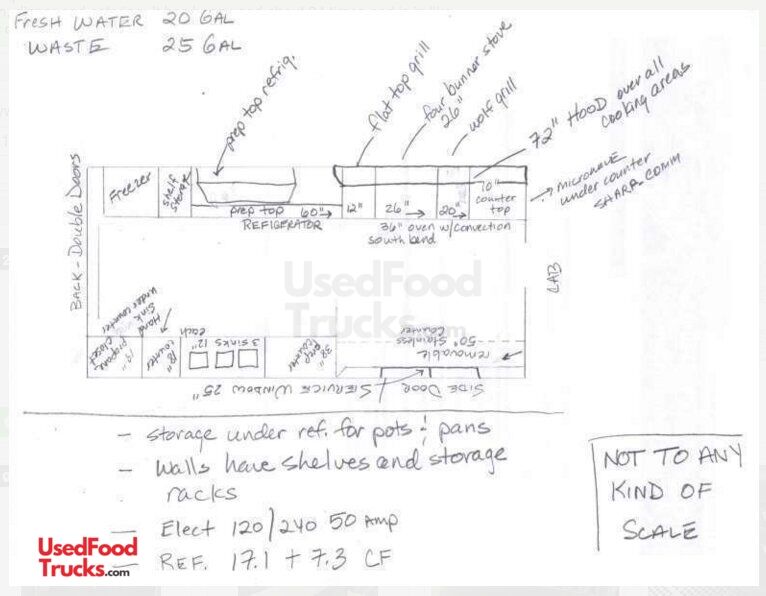 FRESH WATER 20 GAL
WASTE 25 GAL
prep top refrig.
flat top grill
four bunner stove
26"
wolf grill
72" HOOD over all
cooking areas
microwave
under counter
SHARP COMM
BACK - Double Doors
Freezer
shelf
storage
prep top 60"
REFIGERATOR
12"
26"
20"
70"
counter
top
36" oven w/convection
south bend
CAB
UsedFood
Trucks.com
under counter
sink
Hand
propane
closet
19"
18"
counter
3 sinks 12"
each
38"
prep
counter
removable
50" stainless
counter
SIDE DOOR / SERVICE WINDOW 25"
- storage under ref. for pots & pans
- walls have shelves and storage
racks
- Elect 120/240 50 Amp
- REF. 17.1 + 7.3 CF
NOT TO ANY
KIND OF
SCALE
UsedFood
Trucks.com